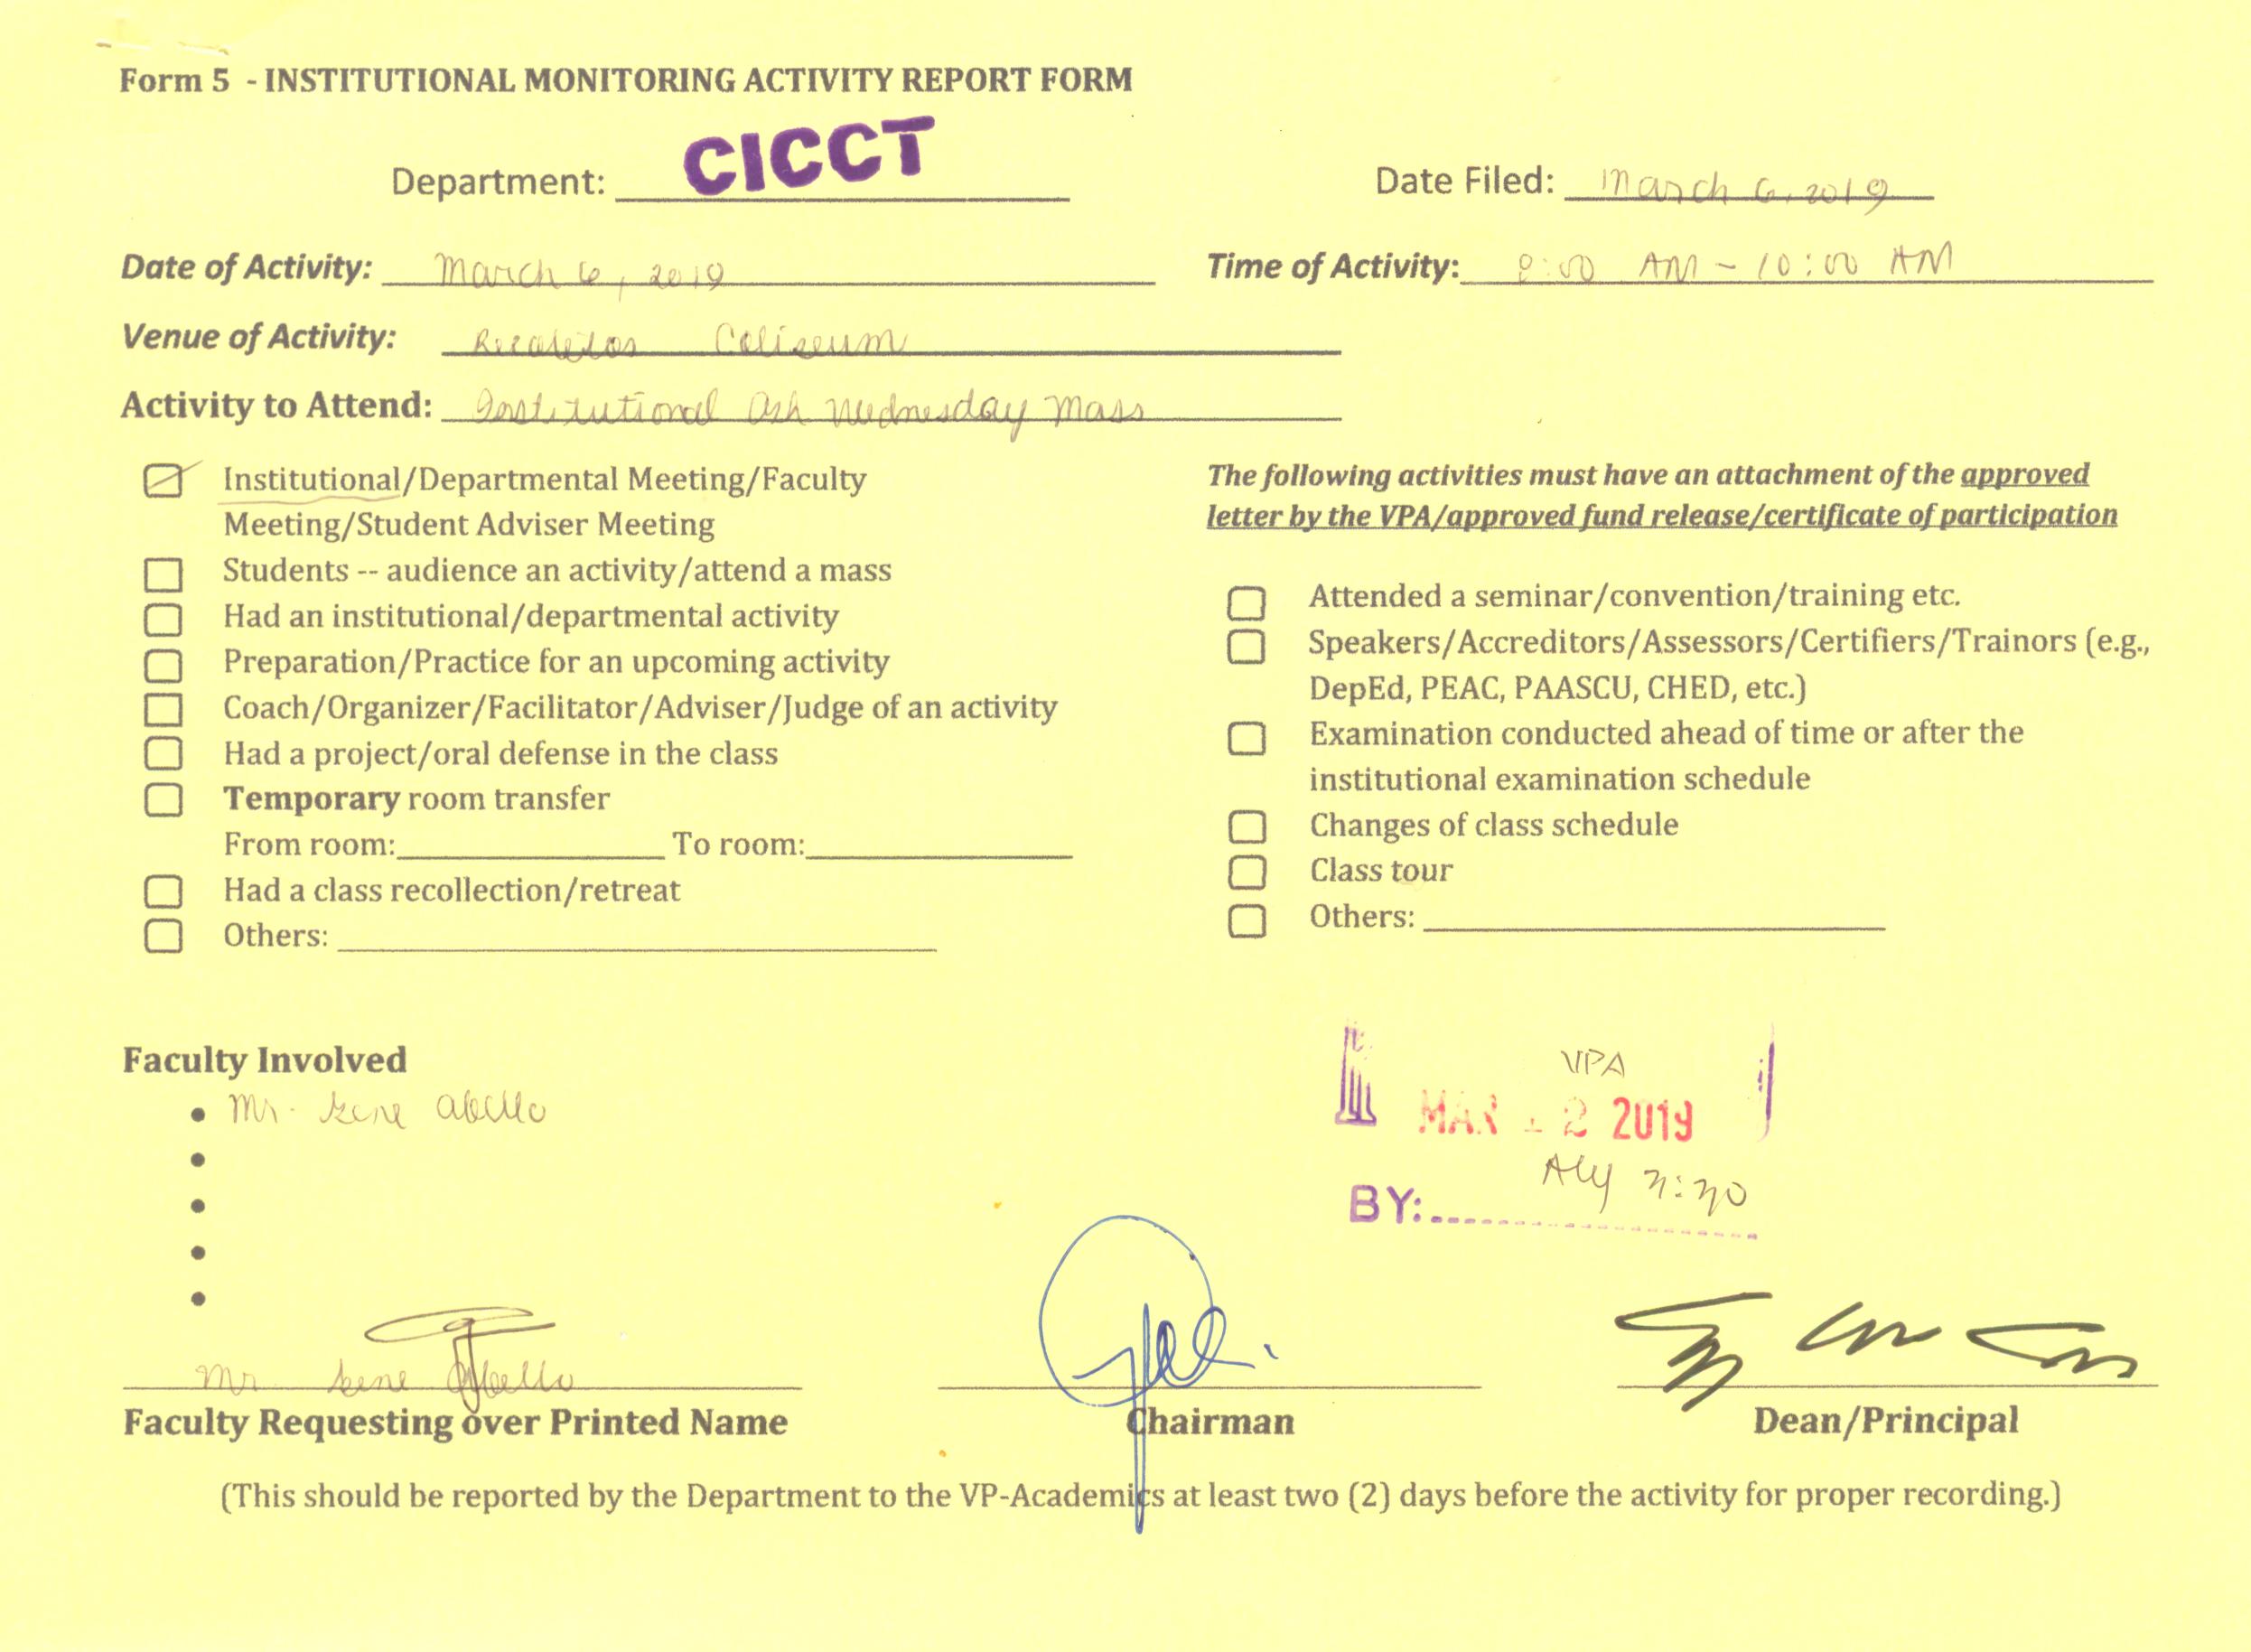 Form 5 - INSTITUTIONAL MONITORING ACTIVITY REPORT FORM
Department: CICCT Date Filed: March 6, 2019
Date of Activity: March 6, 2019 Time of Activity: 8:00 AM - 10:00 AM
Venue of Activity: Recoletos Coliseum
Activity to Attend: Institutional Ash Wednesday Mass
Institutional/Departmental Meeting/Faculty
Meeting/Student Adviser Meeting
Students -- audience an activity/attend a mass
Had an institutional/departmental activity
Preparation/Practice for an upcoming activity
Coach/Organizer/Facilitator/Adviser/Judge of an activity
Had a project/oral defense in the class
Temporary room transfer
From room: To room:
Had a class recollection/retreat
Others:
The following activities must have an attachment of the approved
letter by the VPA/approved fund release/certificate of participation
Attended a seminar/convention/training etc.
Speakers/Accreditors/Assessors/Certifiers/Trainors (e.g.,
DepEd, PEAC, PAASCU, CHED, etc.)
Examination conducted ahead of time or after the
institutional examination schedule
Changes of class schedule
Class tour
Others:
Faculty Involved
Mr. Gene Abello
VPA
MAR 12 2019
BY:
Mr. Gene Abello
Faculty Requesting over Printed Name Chairman Dean/Principal
(This should be reported by the Department to the VP-Academics at least two (2) days before the activity for proper recording.)